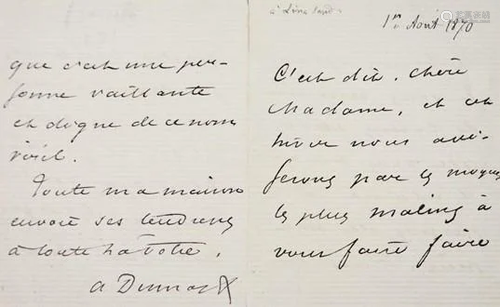 1er Août 1870
C'est dit, chère
Madame, et cet
hiver nous avi-
serons par les moyens
les plus malins à
vous faire faire
que c'est une per-
sonne vaillante
et digne de ce nom
Toute ma maison
envoie ses tendresses
à toute la vôtre.
A Dumas